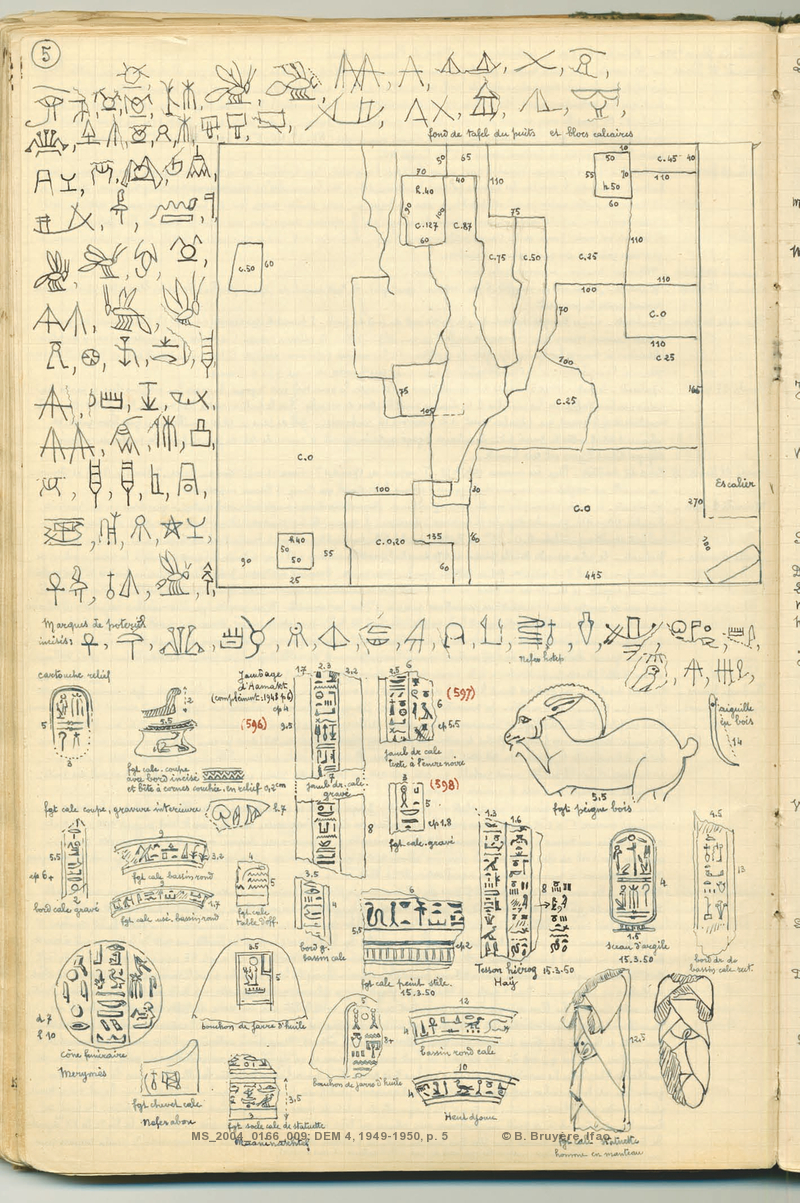 5
fond de tafel du puits et blocs calcaires
50
65
10
50
C.45
40
70
40
110
55
70
110
h.40
h.50
90
100
75
60
C.127
C.87
60
C.75
C.50
C.25
110
C.50
60
100
110
70
C.0
110
C 25
200
75
105
C.25
165
C.0
Escalier
100
30
C.0
270
h40
50
50
55
C.0,20
135
80
90
60
25
445
Marques de poteries
incisés:
Nefer hotep
cartouche relief
5
3
2
5.5
(596)
fgt calc. coupe
avec bord incisé
et bête à cornes couchée, en relief 0,2cm
Jambage
d'Aamakt
(complément: 1948 p.6)
ep 4
9.5
17
2.3
2,2
7
jamb dr. calc.
gravé
8
2.5
6
(597)
6
ep 5.5
jamb dr calc
texte à l'encre noire
3
(398)
5
ep 1.8
fgt calc. gravé
5.5
fgt peigne bois
aiguille
en bois
14
fgt calc coupe, gravure interieure
h.7
5.5
ep 6+
2
bord calc gravé
9
3,2
fgt calc bassin rond
9
1.7
fgt calc usé, bassin rond
4
5
fgt calc
table d'off.
3.5
4
bord g.
bassin calc
6
5.5
ep 2
fgt calc peint stèle.
15.3.50
1.3
1.6
8
Tesson hiérog
Haÿ
15.3.50
4
1.5
sceau d'argile
15.3.50
4.5
13
bord dr. de
bassin calc rect.
d 7
h 10
cône funéraire
Merymès
3.5
5
bouchon de jarre d'huile
5
8+
bouchon de jarre d'huile
12
4
bassin rond calc
10
4
Heut djoume
fgt chevet calc
Nefer abou
3.5
3
fgt socle calc de statuette
12,5
fgt calc statuette
homme en manteau
MS_2004_0166_009; DEM 4, 1949-1950, p. 5
© B. Bruyère, Ifao